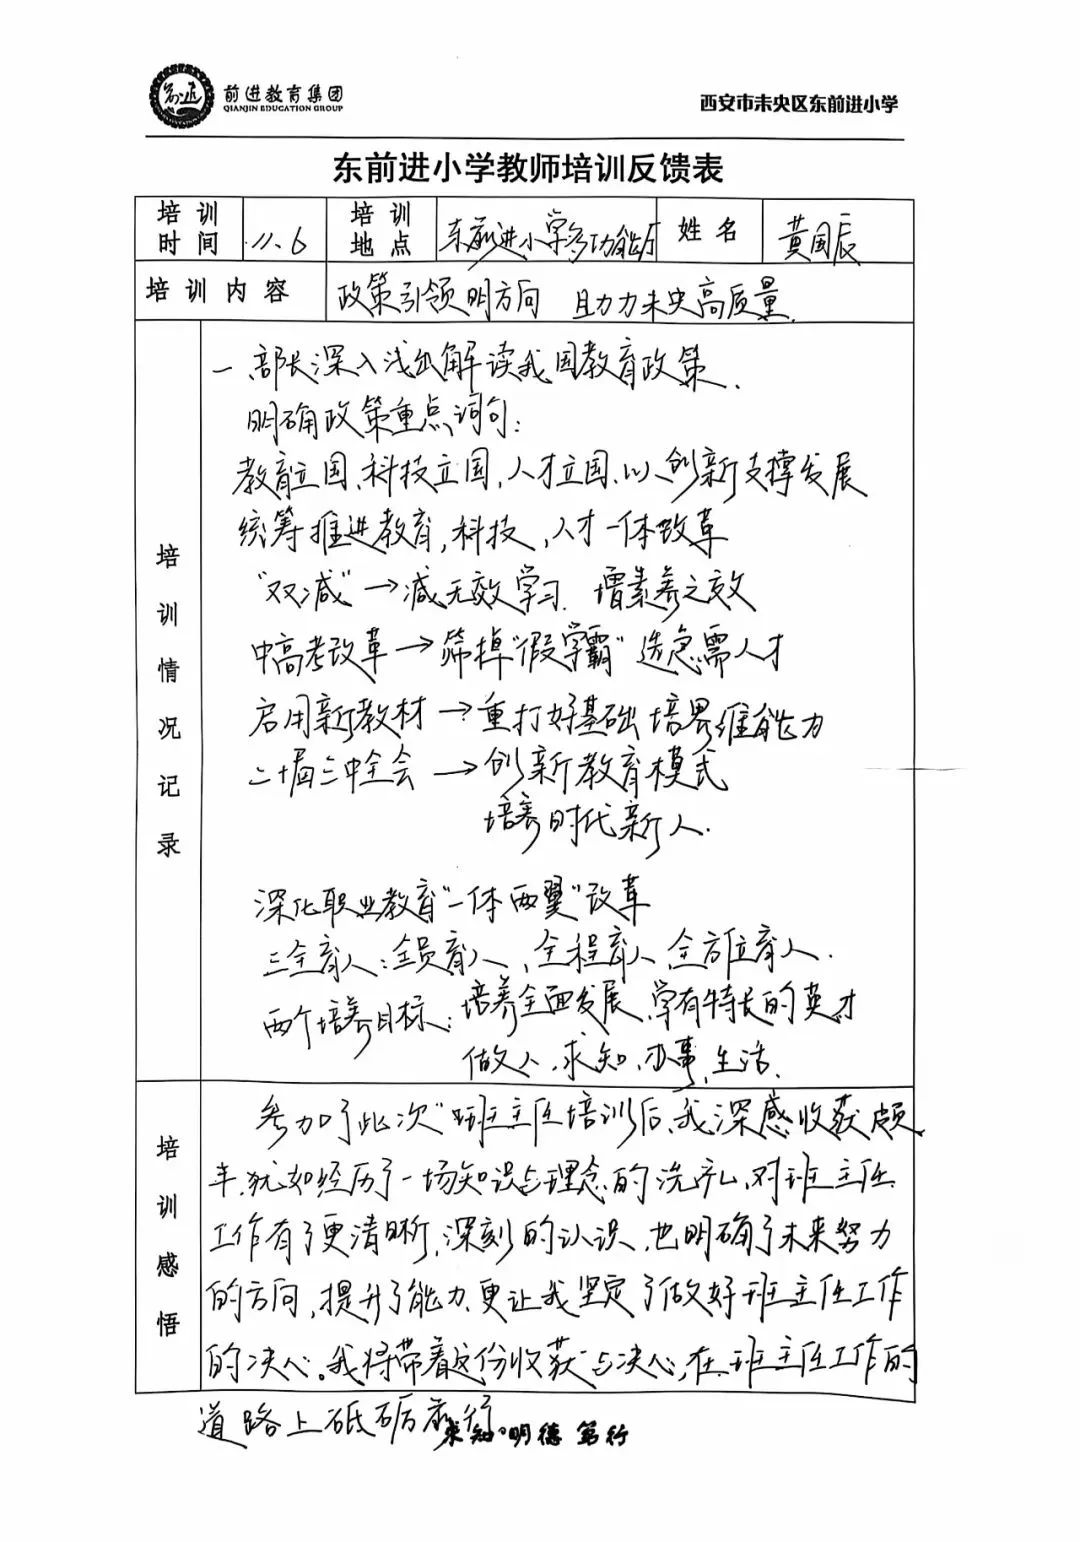 前进教育集团
QIANJIN EDUCATION GROUP
西安市未央区东前进小学
东前进小学教师培训反馈表
培训时间 11.6 培训地点 东前进小学多功能厅 姓名 黄国辰
培训内容 政策引领明方向 助力未央高质量.
培训情况记录
一.部长深入浅出解读我国教育政策.
明确政策重点词句:
教育立国、科技立国,人才立国、以创新支撑发展
统筹推进教育,科技,人才一体改革
"双减"→减无效学习 增素养之效
中高考改革→筛掉"假学霸" 选急需人才
启用新教材→重打好基础 培思维能力
二十届三中全会→创新教育模式
培养时代新人.
深化职业教育"一体两翼"改革
三全育人:全员育人,全程育人 全方位育人.
两个培养目标:培养全面发展、学有特长的英才
做人、求知、办事、生活.
培训感悟
参加了此次"班主任培训后,我深感收获颇
丰,犹如经历了一场知识与理念的洗礼,对班主任
工作有了更清晰,深刻的认识,也明确了未来努力
的方向,提升了能力,更让我坚定了做好班主任工作
的决心。我将带着这份收获与决心,在班主任工作的
道路上砥砺前行。
求知 明德 笃行